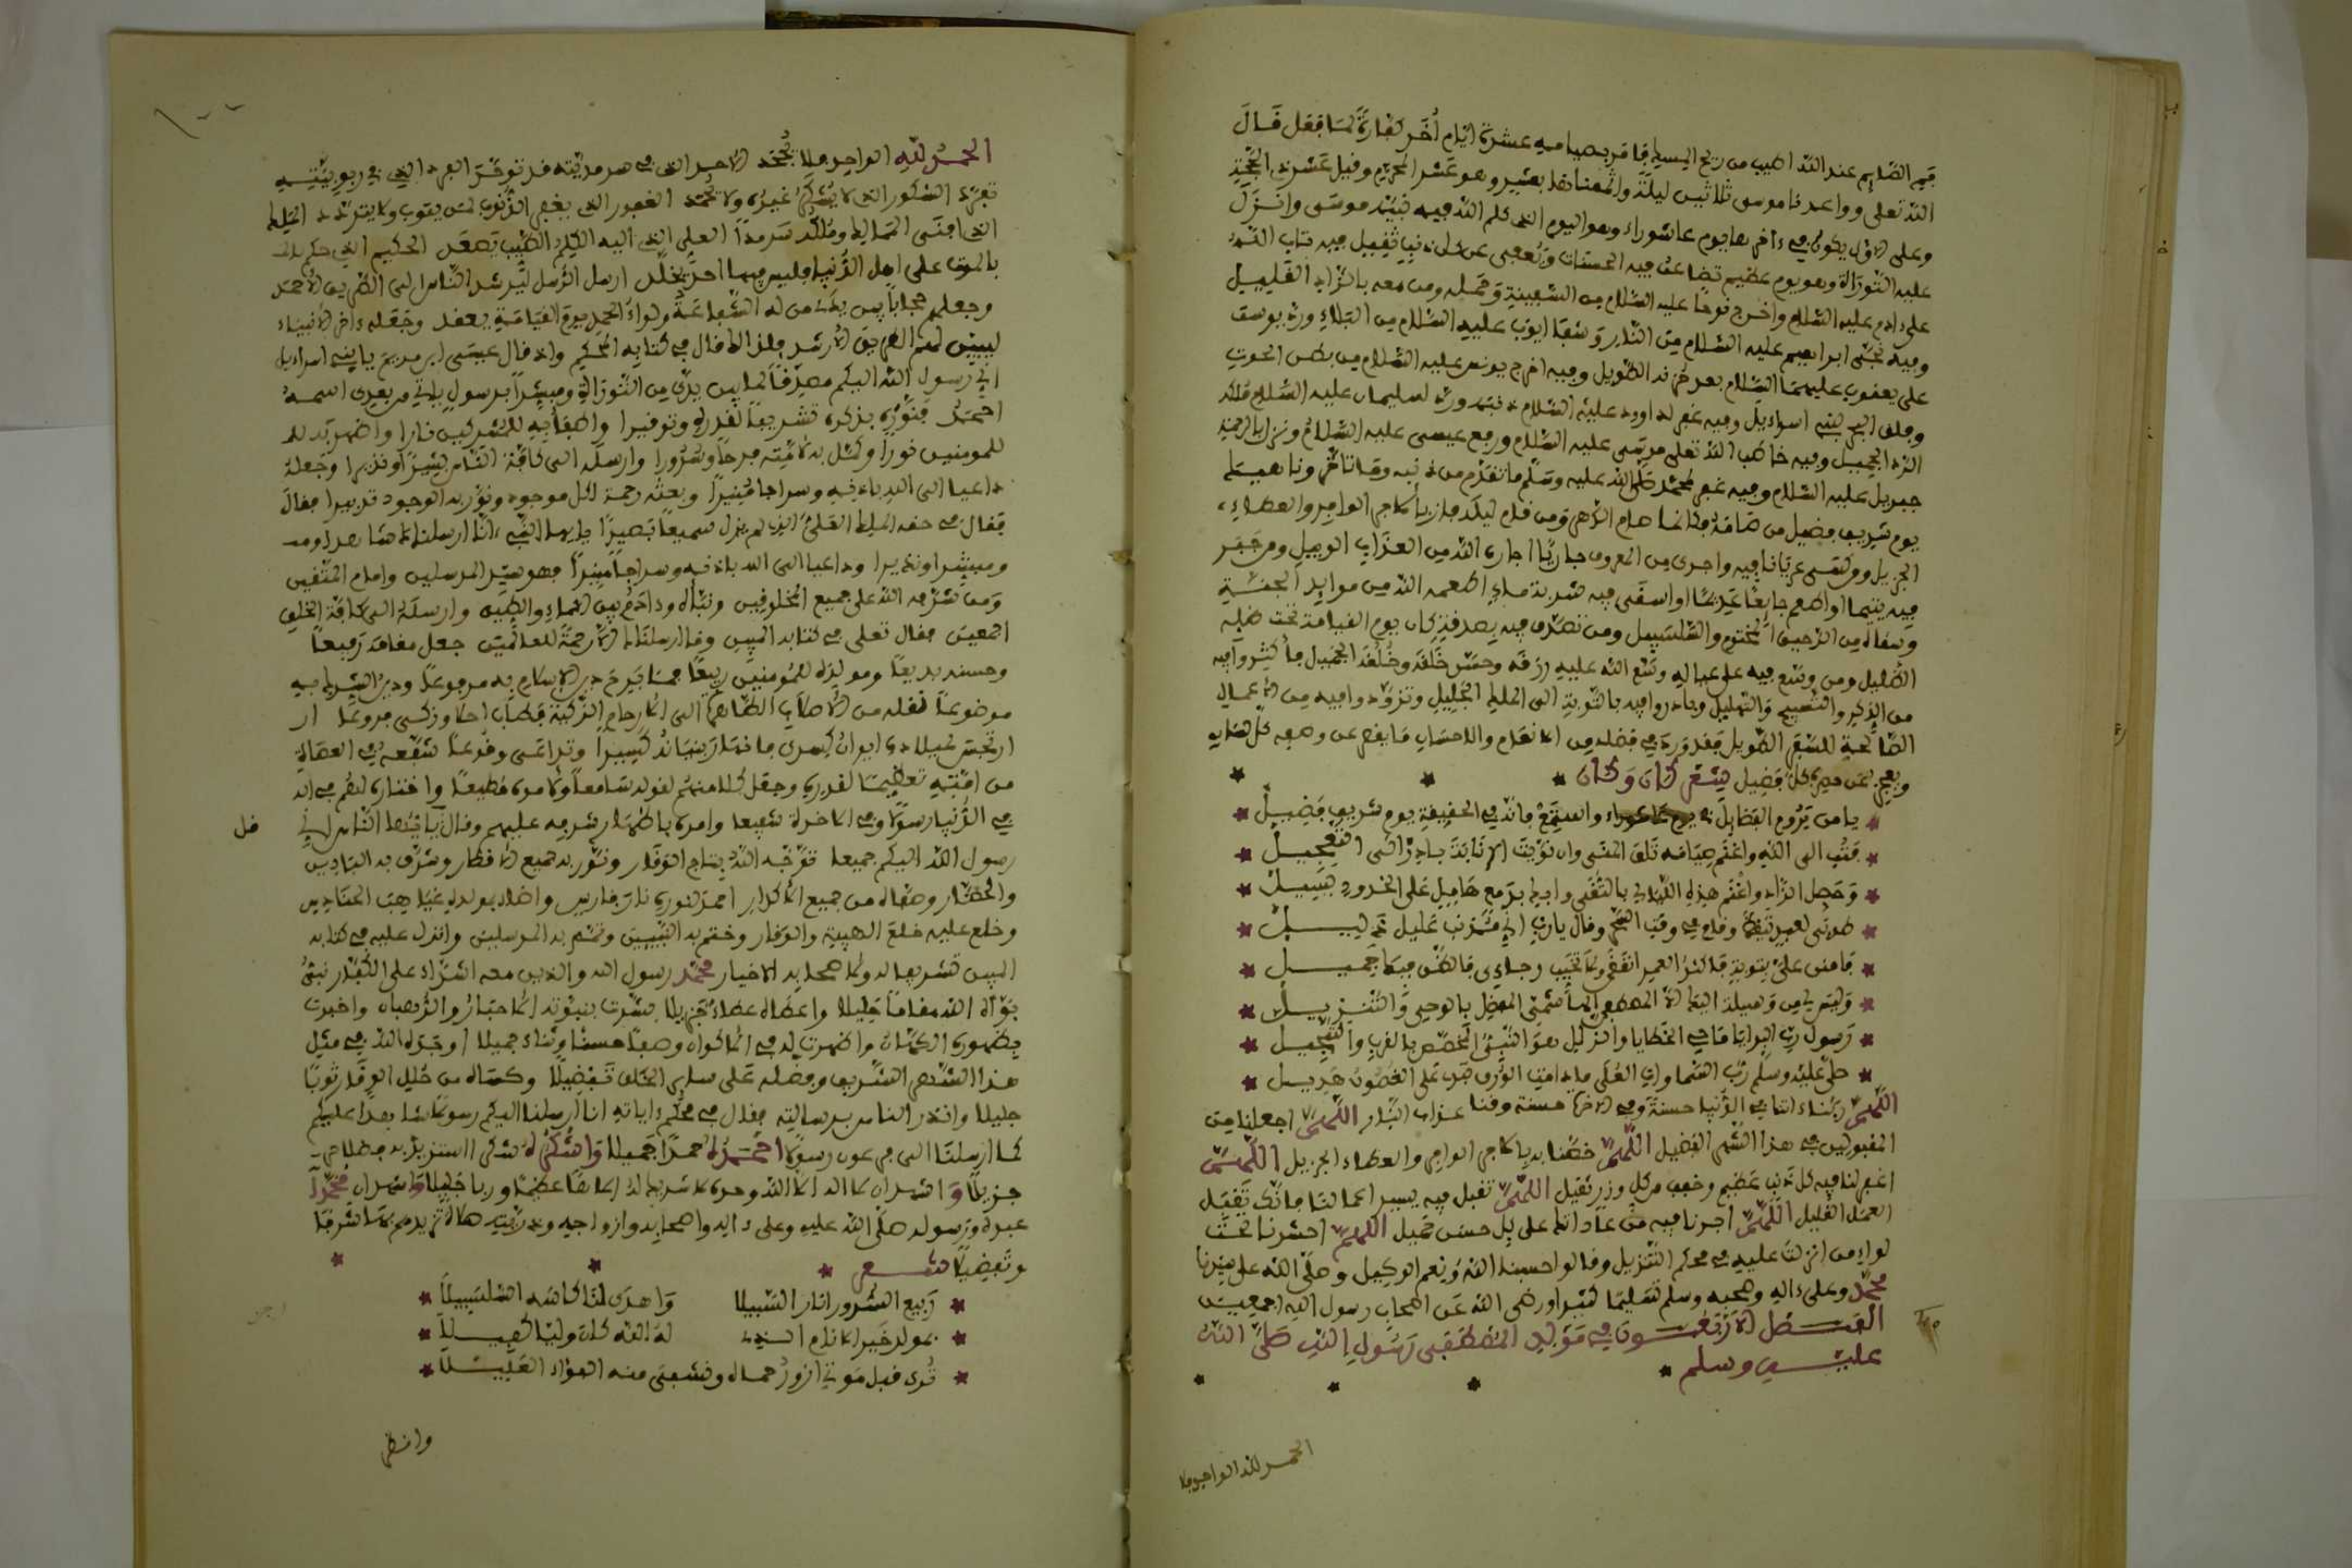 فم الصايم عند الله اطيب من ريح المسك فامر بصيامه عشرة ايام أخر كفارة لما فعل قال
الله تعلى وواعدنا موسى ثلاثين ليلة واتممناها بعشر وهو عشر المحرم وقيل عشر ذي الحجة
وعلى الاول يكون في ءاخرها يوم عاشوراء وهو اليوم الذي كلم الله فيه نبيه موسى وانزل
عليه التوراة وهو يوم عظيم تضاعف فيه الحسنات ويعفى عن كل ذنب ثقيل فيه تاب الله
على ءادم عليه السلام واخرج نوحا عليه السلام من السفينة وحمله ومن معه بالزاد القليل
وفيه نجى ابراهيم عليه السلام من النار وشفا ايوب عليه السلام من البلاء ورد يوسف
على يعقوب عليهما السلام بعد حزنه الطويل وفيه اخرج يونس عليه السلام من بطن الحوت
وفلق البحر لبني اسراءيل وفيه غفر لداوود عليه السلام ذنبه ورد لسليمان عليه السلام ملكه
الزايد الجميل وفيه خاطب الله تعلى موسى عليه السلام ورفع عيسى عليه السلام ونزل بالرحمة
جبريل عليه السلام وفيه غفر لمحمد صلى الله عليه وسلم ما تقدم من ذنبه وما تاخر وناهيك
يوم شريف فضيل من صامه فكانما صام الدهر ومن قام ليله فاز بالاجر الوافر والعطاء
الجزيل ومن كسى عريانا فيه واجرى من المعروف جاريا اجاره الله من العذاب الوبيل ومن جبر
فيه يتيما او اطعم جايعا غريبا او اسقى فيه شربة ماء اطعمه الله من موايد الجنة
وسقاه من الرحيق المختوم والسلسبيل ومن تصدق فيه بصدقة كان يوم القيامة تحت ظله
الظليل ومن وسع فيه على عياله وسع الله عليه رزقه وحسن خلقه وخلقه الجميل فاكثروا فيه
من الذكر والتسبيح والتهليل وبادروا فيه بالتوبة الى الملك الجليل وتزودوا فيه من الاعمال
الصالحة للسفر الطويل فقد ورد في فضله من الانعام والاحسان ما يقصر عن وصفه كل لسان
ويعجز عن حصره كل فضيل شعر كان وكان
يا من يروم الفضايل في يوم عاشوراء واستمع فانه في الحقيقة يوم شريف فضيل
فتب الى الله واغنم صيامه تلق المنى وان نويت الانابة بادر الى التعجيل
وحصل الزاد واغنم هذه الليالي بالتقى وابك بدمع هامل على الخدود يسيل
طوبى لعبد تيقظ وقام في وقت السحر وقال يا رب اني مذنب عليل ذليل
فامنن علي بتوبة فاكثر العمر انقضى ولا تخيب رجاءي فالظن فيك جميل
وليس لي من وسيلة اليك الا المصطفى الهاشمي المفضل بالوحي والتنزيل
رسول رب البرايا ماحي الخطايا والزلل هو النبي المخصص بالقرب والتبجيل
صلى عليه وسلم رب السماوات العلى ما دامت الورق تبدي على الغصون هديل
اللهم ربناء اتنا في الدنيا حسنة وفي الاخرة حسنة وقنا عذاب النار اللهم اجعلنا من
المقبولين في هذا الشهر الفضيل اللهم خصنا به بالاجر الوافر والعطاء الجزيل اللهم
اغفر لنا فيه كل ذنب عظيم وخفف من كل وزر ثقيل اللهم تقبل فيه يسير اعمالنا فانك تقبل
العمل القليل اللهم اجرنا فيه من عاداتك على كل حسن جميل اللهم احشرنا تحت
لواء من انزلت عليه في محكم التنزيل وقالوا حسبنا الله ونعم الوكيل وصلى الله على سيدنا
محمد وعلى ءاله وصحبه وسلم تسليما كثيرا ورضي الله عن اصحاب رسول الله اجمعين
الفصل الاربعون في مولد المصطفى رسول الله صلى الله
عليه وسلم
الحمد لله الواحد فلا
الحمد لله الواحد فلا يجحد الاحد الذي في صمديته قد توحد الفرد الذي في ربوبيته
تفرد الشكور الذي لا يشكر غيره ولا يحمد الغفور الذي يغفر الذنوب لمن يتوب ولا يتردد الملك
الذي افنى الممالك وملكه سرمدا العلي الذي اليه الكلم الطيب يصعد الحكيم الذي حكم
بالموت على اهل الدنيا فليس فيها احد يخلد ارسل الرسل ليرشد الناس الى الطريق الاحمد
وجعلهم حجابا بين يدي من له الشفاعة ولواء الحمد يوم القيامة يعقد وجعله ءاخر الانبياء
ليبين لهم الطريق الارشد فلذالك قال في كتابه الحكيم واذ قال عيسى ابن مريم يا بني اسراءيل
اني رسول الله اليكم مصدقا لما بين يدي من التوراة ومبشرا برسول ياتي من بعدي اسمه
احمد فنوه بذكره تشريفا لقدره وتوقيرا واطفأ به للمشركين نارا واظهر به
للمومنين نورا وكمل به لامته فرحا وسرورا وارسله الى كافة الناس بشيرا ونذيرا وجعله
داعيا الى الله باذنه وسراجا منيرا وبعثه رحمة لكل موجود ونور به الوجود تدبيرا فقال
فقال في حقه الملك العلي الذي لم يزل سميعا بصيرا يايها النبي انا ارسلناك شاهدا
ومبشرا ونذيرا وداعيا الى الله باذنه وسراجا منيرا فهو سيد المرسلين وامام المتقين
ومن شرفه الله على جميع المخلوقين ونباه وءادم بين الماء والطين وارسله الى كافة الخلق
اجمعين فقال تعلى في كتابه المبين وما ارسلناك الا رحمة للعالمين جعل مقامه رفيعا
وحسنه بديعا ومولده للمومنين ربيعا
موضوعا نقله من الاصلاب الطاهرة الى الارحام الزكية فطاب اصلا وزكى فروعا
ارتجس لميلاده ايوان كسرى
من امته تعظيما لقدره وجعل كلا منهم لقوله سامعا ولامره مطيعا واختاره لهم
في الدنيا رسولا وفي الاخرة شفيعا وامره باظهار شرفه عليهم وقال يا ايها الناس اني
قل
رسول الله اليكم جميعا توجه الله بتاج الوقار ونور به جميع الاقطار وشرف به البادين
والحضار وصفاه من جميع الاكدار اخمد لنوره نار فارس واضاء بمولده غياهب الحنادس
وخلع عليه خلع الهيبة والوقار وختم به النبيين وتمم به المرسلين وانزل عليه في كتابه
المبين تشريفا له ولاصحابه الاخيار محمد رسول الله والذين معه اشداء على الكفار نبي
بوأه الله مقاما جليلا واعطاه عطاء جزيلا بشرت بنبوته الاحبار والرهبان واخبرت
بظهوره الكهان واظهرت له في الاكوان وصفا حسنا وثناء جميلا اوجده الله في مثل
هذا الشهر الشريف وفضله على ساير الخلق تفضيلا وكساه من حلل الوقار ثوبا
جليلا وانذر الناس برسالته فقال في محكم ءاياته انا ارسلنا اليكم رسولا شاهدا عليكم
كما ارسلنا الى فرعون رسولا احمده حمدا جميلا واشكره شكرا استزيد به فضلا
جزيلا واشهد ان لا اله الا الله وحده لا شريك له الاها عظيما وربا جليلا واشهد ان محمدا
عبده ورسوله صلى الله عليه وعلى ءاله واصحابه وازواجه وذريته صلاة تزيدهم شرفا
وتفضيلا شعر
ربيع السرور انار السبيلا واهدى لنا كاسه السلسبيلا
بمولد خير الانام الذي له الله كان وليا كفيلا
تُرى قبل موتي ازور حماه ونشفى منه الفؤاد العليلا
وانظر